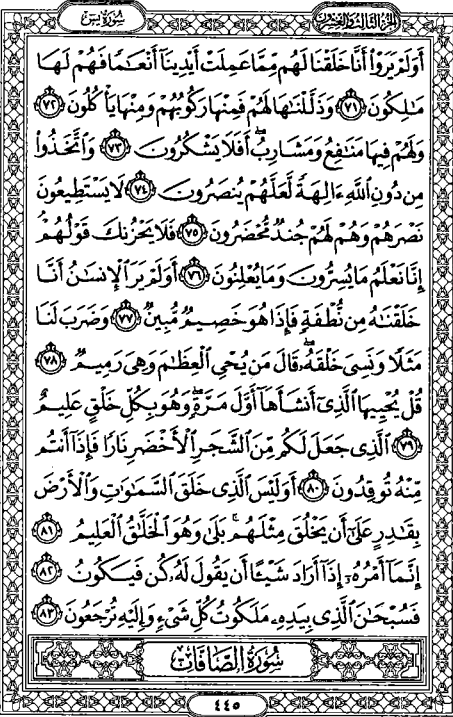 الجزء الثالث والعشرون
سورة يس
أَوَلَمْ يَرَوْا۟ أَنَّا خَلَقْنَا لَهُم مِّمَّا عَمِلَتْ أَيْدِينَآ أَنْعَٰمًا فَهُمْ لَهَا
مَٰلِكُونَ ٧١ وَذَلَّلْنَٰهَا لَهُمْ فَمِنْهَا رَكُوبُهُمْ وَمِنْهَا يَأْكُلُونَ ٧٢
وَلَهُمْ فِيهَا مَنَٰفِعُ وَمَشَارِبُ ۖ أَفَلَا يَشْكُرُونَ ٧٣ وَٱتَّخَذُوا۟
مِن دُونِ ٱللَّهِ ءَالِهَةً لَّعَلَّهُمْ يُنصَرُونَ ٧٤ لَا يَسْتَطِيعُونَ
نَصْرَهُمْ وَهُمْ لَهُمْ جُندٌ مُّحْضَرُونَ ٧٥ فَلَا يَحْزُنكَ قَوْلُهُمْ ۘ
إِنَّا نَعْلَمُ مَا يُسِرُّونَ وَمَا يُعْلِنُونَ ٧٦ أَوَلَمْ يَرَ ٱلْإِنسَٰنُ أَنَّا
خَلَقْنَٰهُ مِن نُّطْفَةٍ فَإِذَا هُوَ خَصِيمٌ مُّبِينٌ ٧٧ وَضَرَبَ لَنَا
مَثَلًا وَنَسِىَ خَلْقَهُۥ ۖ قَالَ مَن يُحْىِ ٱلْعِظَٰمَ وَهِىَ رَمِيمٌ ٧٨
قُلْ يُحْيِيهَا ٱلَّذِىٓ أَنشَأَهَآ أَوَّلَ مَرَّةٍ ۖ وَهُوَ بِكُلِّ خَلْقٍ عَلِيمٌ
٧٩ ٱلَّذِى جَعَلَ لَكُم مِّنَ ٱلشَّجَرِ ٱلْأَخْضَرِ نَارًا فَإِذَآ أَنتُم
مِّنْهُ تُوقِدُونَ ٨٠ أَوَلَيْسَ ٱلَّذِى خَلَقَ ٱلسَّمَٰوَٰتِ وَٱلْأَرْضَ
بِقَٰدِرٍ عَلَىٰٓ أَن يَخْلُقَ مِثْلَهُم ۚ بَلَىٰ وَهُوَ ٱلْخَلَّٰقُ ٱلْعَلِيمُ ٨١
إِنَّمَآ أَمْرُهُۥٓ إِذَآ أَرَادَ شَيْـًٔا أَن يَقُولَ لَهُۥ كُن فَيَكُونُ ٨٢
فَسُبْحَٰنَ ٱلَّذِى بِيَدِهِۦ مَلَكُوتُ كُلِّ شَىْءٍ وَإِلَيْهِ تُرْجَعُونَ ٨٣
سُورَةُ الصَّافَّاتِ
٤٤٥